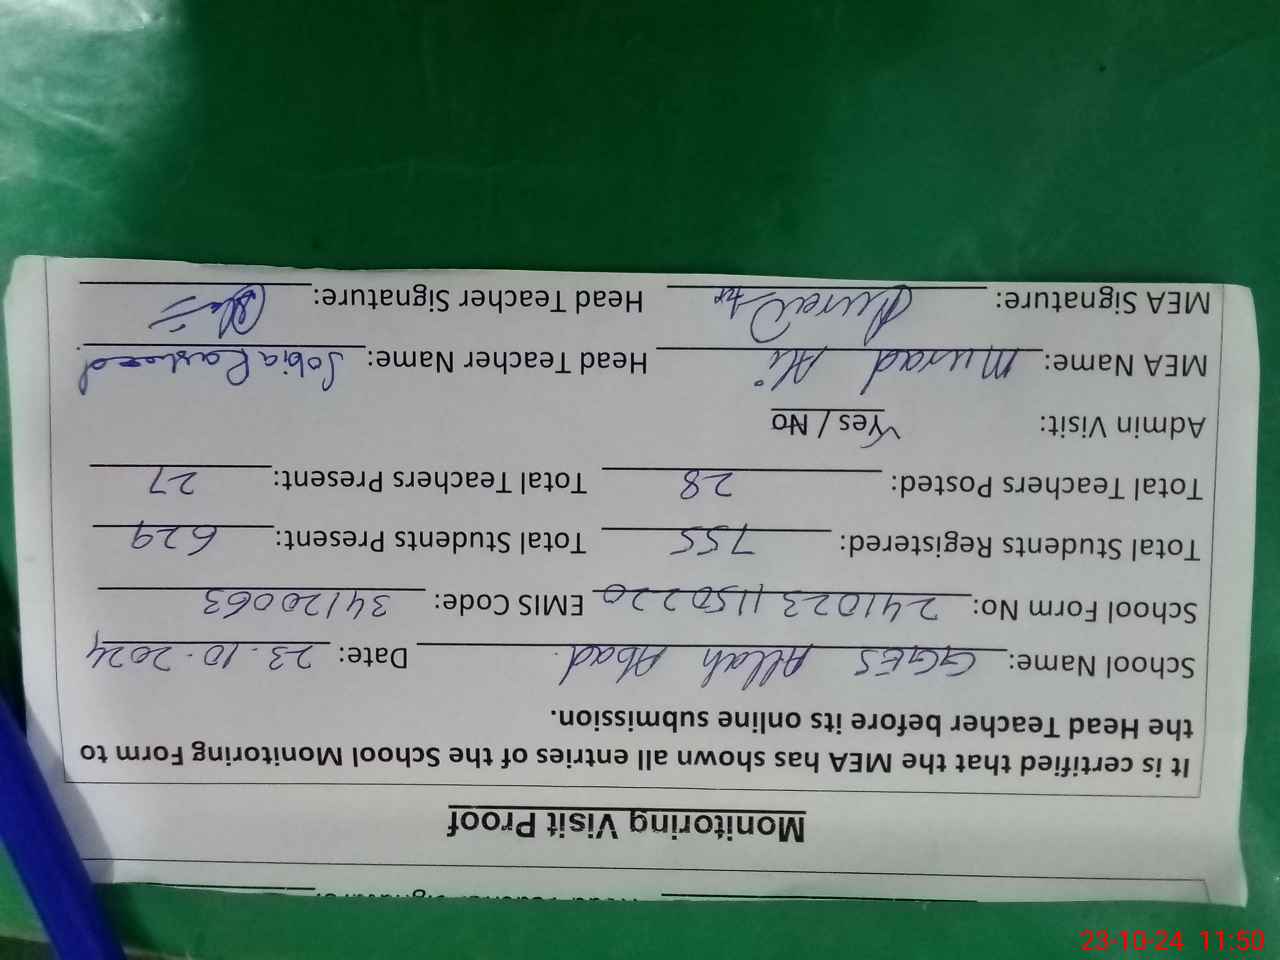 Monitoring Visit Proof
It is certified that the MEA has shown all entries of the School Monitoring Form to
the Head Teacher before its online submission.
School Name: GGES Allah Abad. Date: 23.10.2024
School Form No: 2410231150220 EMIS Code: 34120063
Total Students Registered: 755 Total Students Present: 629
Total Teachers Posted: 28 Total Teachers Present: 27
Admin Visit: Yes / No
MEA Name: Murad Ali Head Teacher Name: Sobia Rasheed
MEA Signature: Head Teacher Signature:
23-10-24 11:50